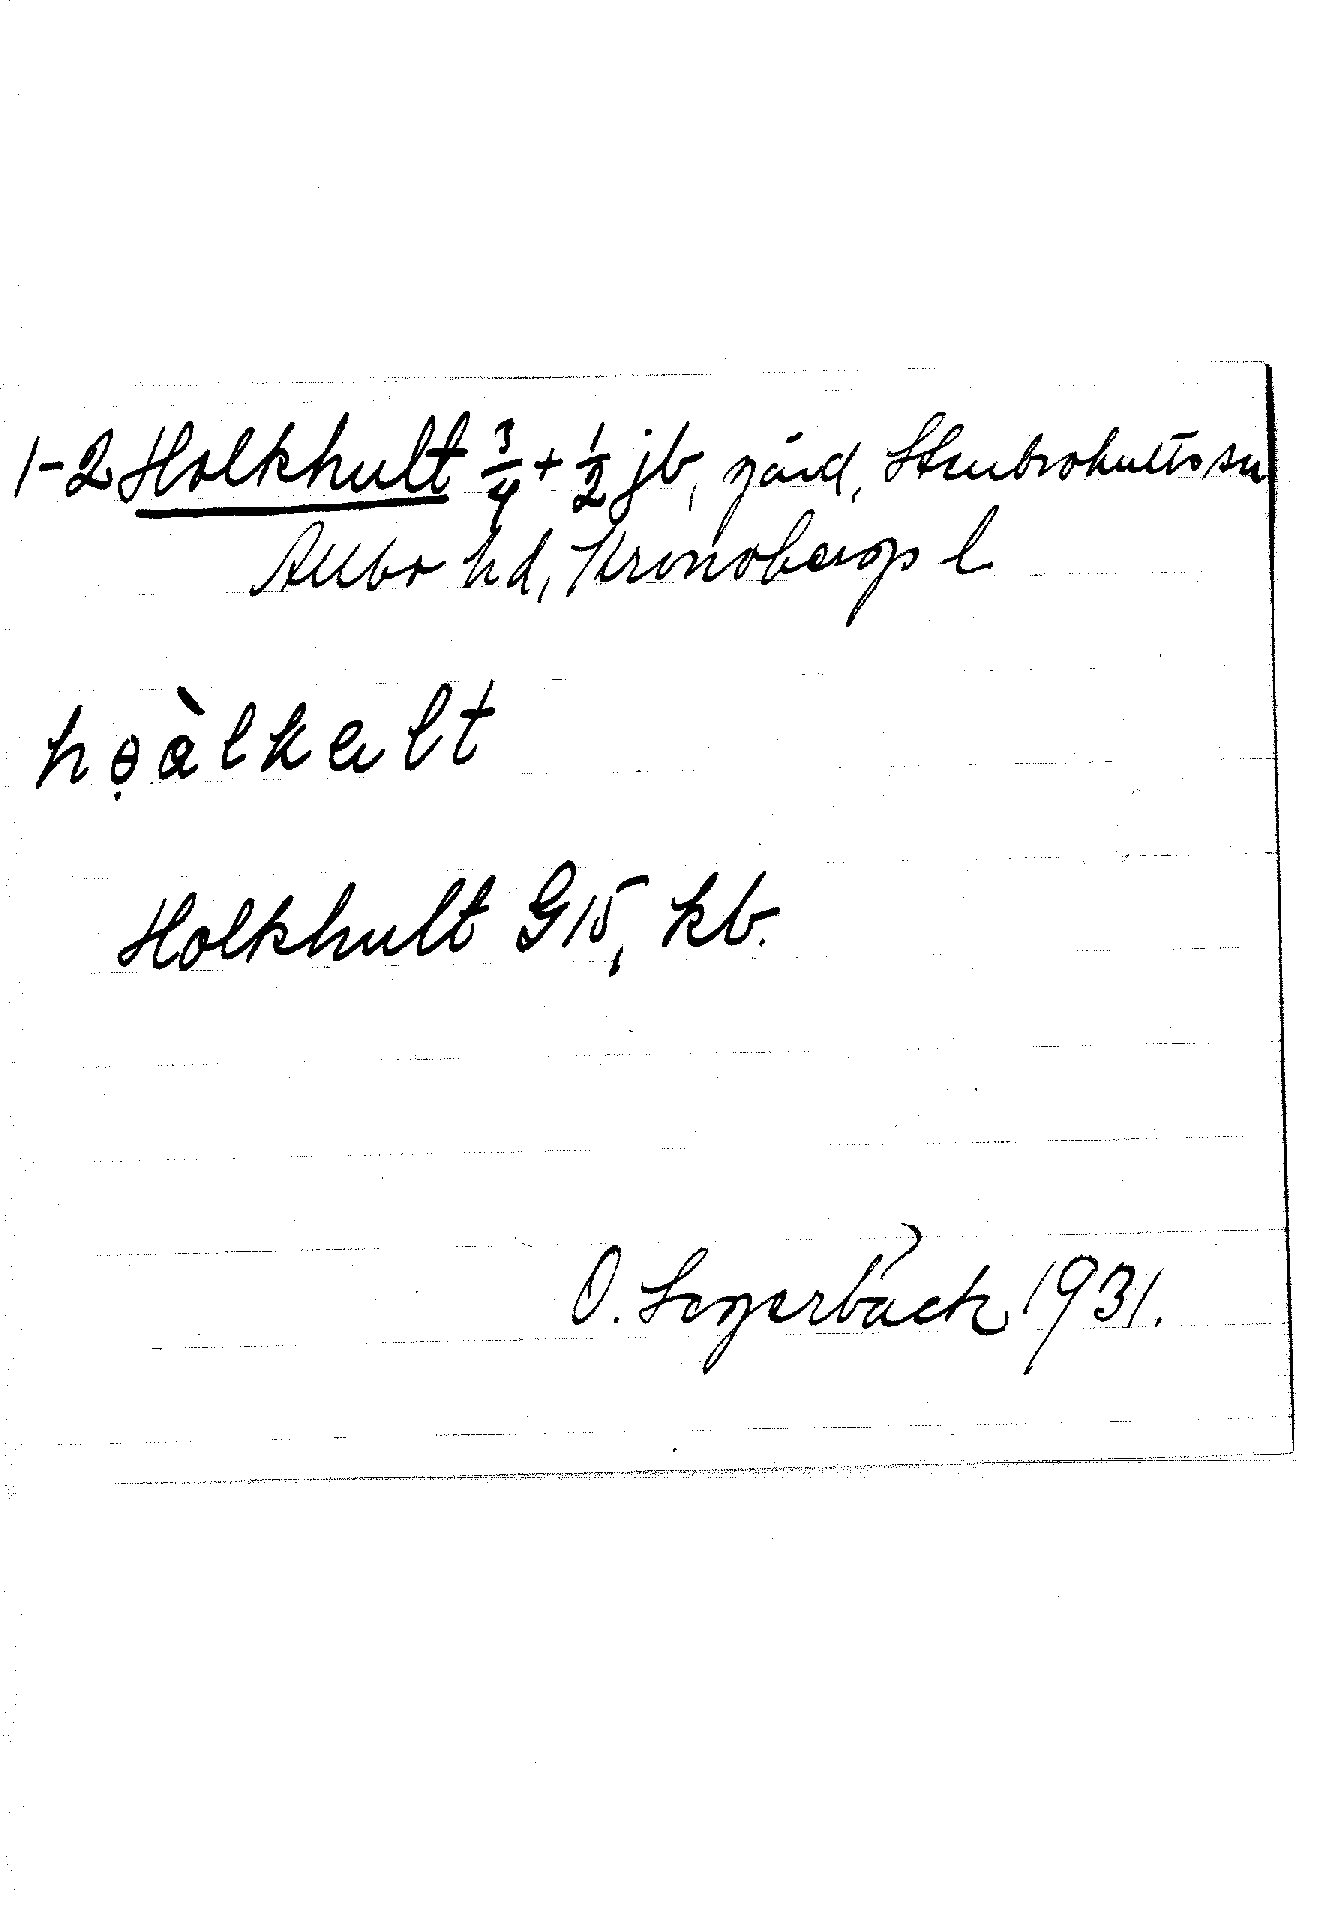 1-2 Holkhult 3/4 + 1/2 jb, gård, Stenbrohults sn
Allbo hd, Kronobergs l
họàlkɐlt
Holkhult G15, kb.
O. Segerbäck 1931.